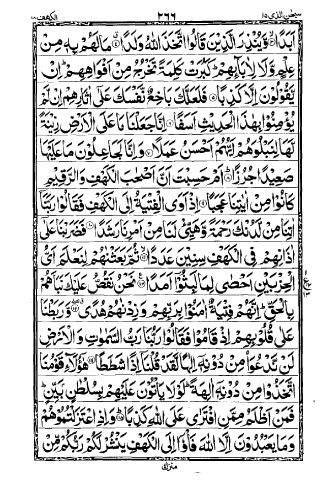 سبحٰن الذی ۱۵ ۲۶۶ الکهف ۱۸
اَبَدًا ۙ﴿۳﴾ وَّيُنْذِرَ الَّذِيْنَ قَالُوا اتَّخَذَ اللّٰهُ وَلَدًا ﴿۴﴾ مَا لَهُمْ بِهٖ مِنْ
عِلْمٍ وَّلَا لِاٰبَآئِهِمْ ؕ كَبُرَتْ كَلِمَةً تَخْرُجُ مِنْ اَفْوَاهِهِمْ ؕ اِنْ
يَّقُوْلُوْنَ اِلَّا كَذِبًا ﴿۵﴾ فَلَعَلَّكَ بَاخِعٌ نَّفْسَكَ عَلٰۤى اٰثَارِهِمْ اِنْ لَّمْ
يُؤْمِنُوْا بِهٰذَا الْحَدِيْثِ اَسَفًا ﴿۶﴾ اِنَّا جَعَلْنَا مَا عَلَى الْاَرْضِ زِيْنَةً
لَّهَا لِنَبْلُوَهُمْ اَيُّهُمْ اَحْسَنُ عَمَلًا ﴿۷﴾ وَاِنَّا لَجٰعِلُوْنَ مَا عَلَيْهَا
صَعِيْدًا جُرُزًا ﴿۸﴾ اَمْ حَسِبْتَ اَنَّ اَصْحٰبَ الْكَهْفِ وَالرَّقِيْمِ
كَانُوْا مِنْ اٰيٰتِنَا عَجَبًا ﴿۹﴾ اِذْ اَوَى الْفِتْيَةُ اِلَى الْكَهْفِ فَقَالُوْا رَبَّنَاۤ
اٰتِنَا مِنْ لَّدُنْكَ رَحْمَةً وَّهَيِّئْ لَنَا مِنْ اَمْرِنَا رَشَدًا ﴿۱۰﴾ فَضَرَبْنَا عَلٰۤى
اٰذَانِهِمْ فِى الْكَهْفِ سِنِيْنَ عَدَدًا ﴿۱۱﴾ ثُمَّ بَعَثْنٰهُمْ لِنَعْلَمَ اَىُّ
الْحِزْبَيْنِ اَحْصٰى لِمَا لَبِثُوْۤا اَمَدًا ﴿۱۲﴾ نَحْنُ نَقُصُّ عَلَيْكَ نَبَاَهُمْ
بِالْحَقِّ ؕ اِنَّهُمْ فِتْيَةٌ اٰمَنُوْا بِرَبِّهِمْ وَزِدْنٰهُمْ هُدًى ﴿۱۳﴾ وَّرَبَطْنَا
عَلٰى قُلُوْبِهِمْ اِذْ قَامُوْا فَقَالُوْا رَبُّنَا رَبُّ السَّمٰوٰتِ وَالْاَرْضِ
لَنْ نَّدْعُوَا۟ مِنْ دُوْنِهٖۤ اِلٰهًا لَّقَدْ قُلْنَاۤ اِذًا شَطَطًا ﴿۱۴﴾ هٰۤؤُلَآءِ قَوْمُنَا
اتَّخَذُوْا مِنْ دُوْنِهٖۤ اٰلِهَةً ؕ لَوْلَا يَاْتُوْنَ عَلَيْهِمْ بِسُلْطٰنٍۭ بَيِّنٍ ؕ
فَمَنْ اَظْلَمُ مِمَّنِ افْتَرٰى عَلَى اللّٰهِ كَذِبًا ﴿۱۵﴾ وَاِذِ اعْتَزَلْتُمُوْهُمْ
وَمَا يَعْبُدُوْنَ اِلَّا اللّٰهَ فَاْوٗۤا اِلَى الْكَهْفِ يَنْشُرْ لَكُمْ رَبُّكُمْ مِّنْ